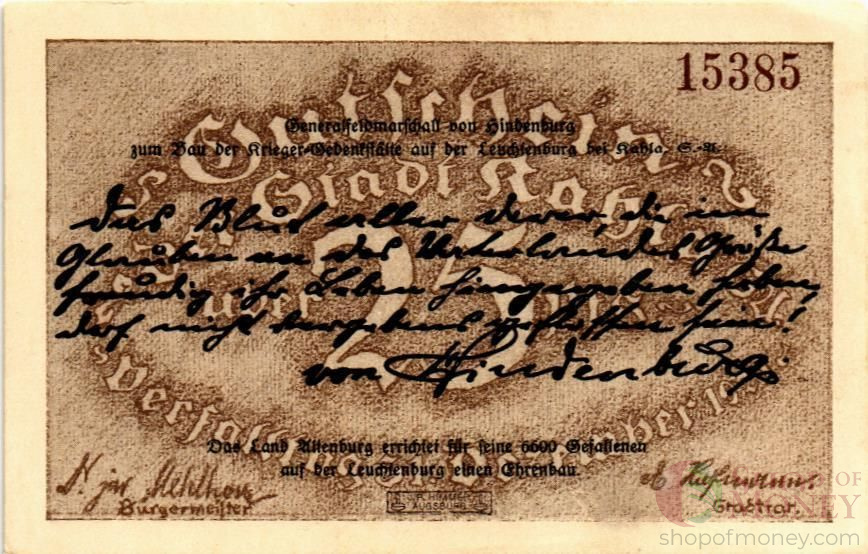 15385
Gutschein
Generalfeldmarschall von Hindenburg
zum Bau der Krieger-Gedenkstätte auf der Leuchtenburg bei Kahla, S.-A.
Stadt Kahla
Das Blut aller derer, die im
Glauben an des Vaterlandes Größe
freudig ihr Leben hingegeben haben,
darf nicht vergebens geflossen sein!
von Hindenburg.
über 25
Das Land Altenburg errichtet für seine 6600 Gefallenen
auf der Leuchtenburg einen Ehrenbau.
Bürgermeister
Stadtrat.
AUGSBURG
OF
MONEY
shopofmoney.com